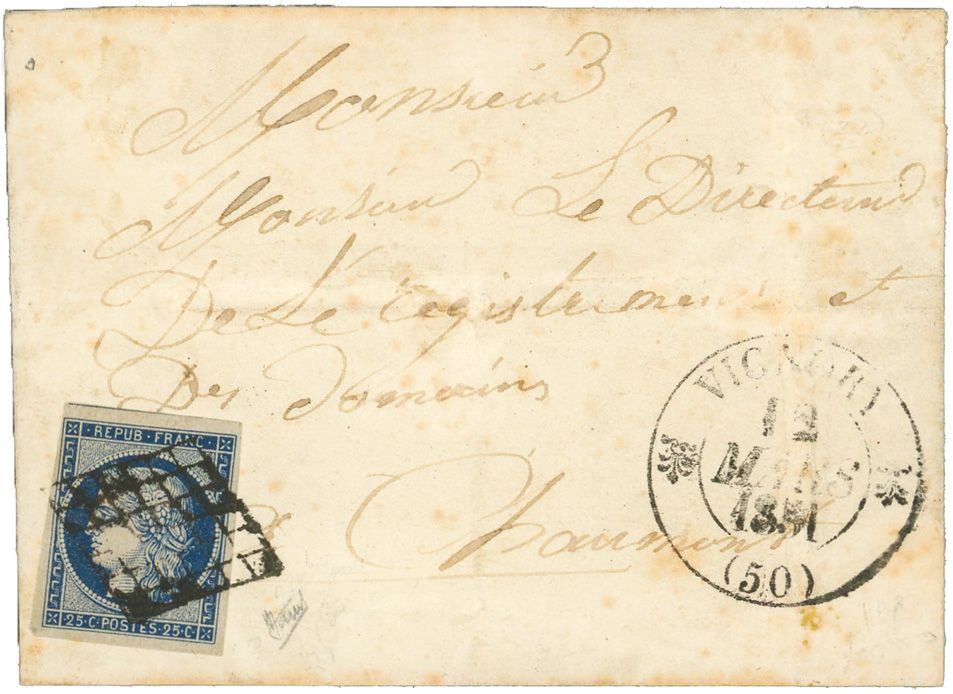 Monsieur
Monsieur Le Directeur
De L'Enregistrement et
Des Domaines
à Chaumont
VIGNORY
12
MARS
1851
(50)
REPUB·FRANC
25·C·POSTES·25·C·